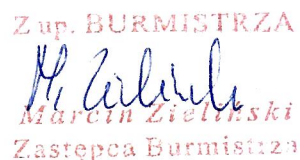 Z up. BURMISTRZA
Marcin Zieliński
Zastępca Burmistrza